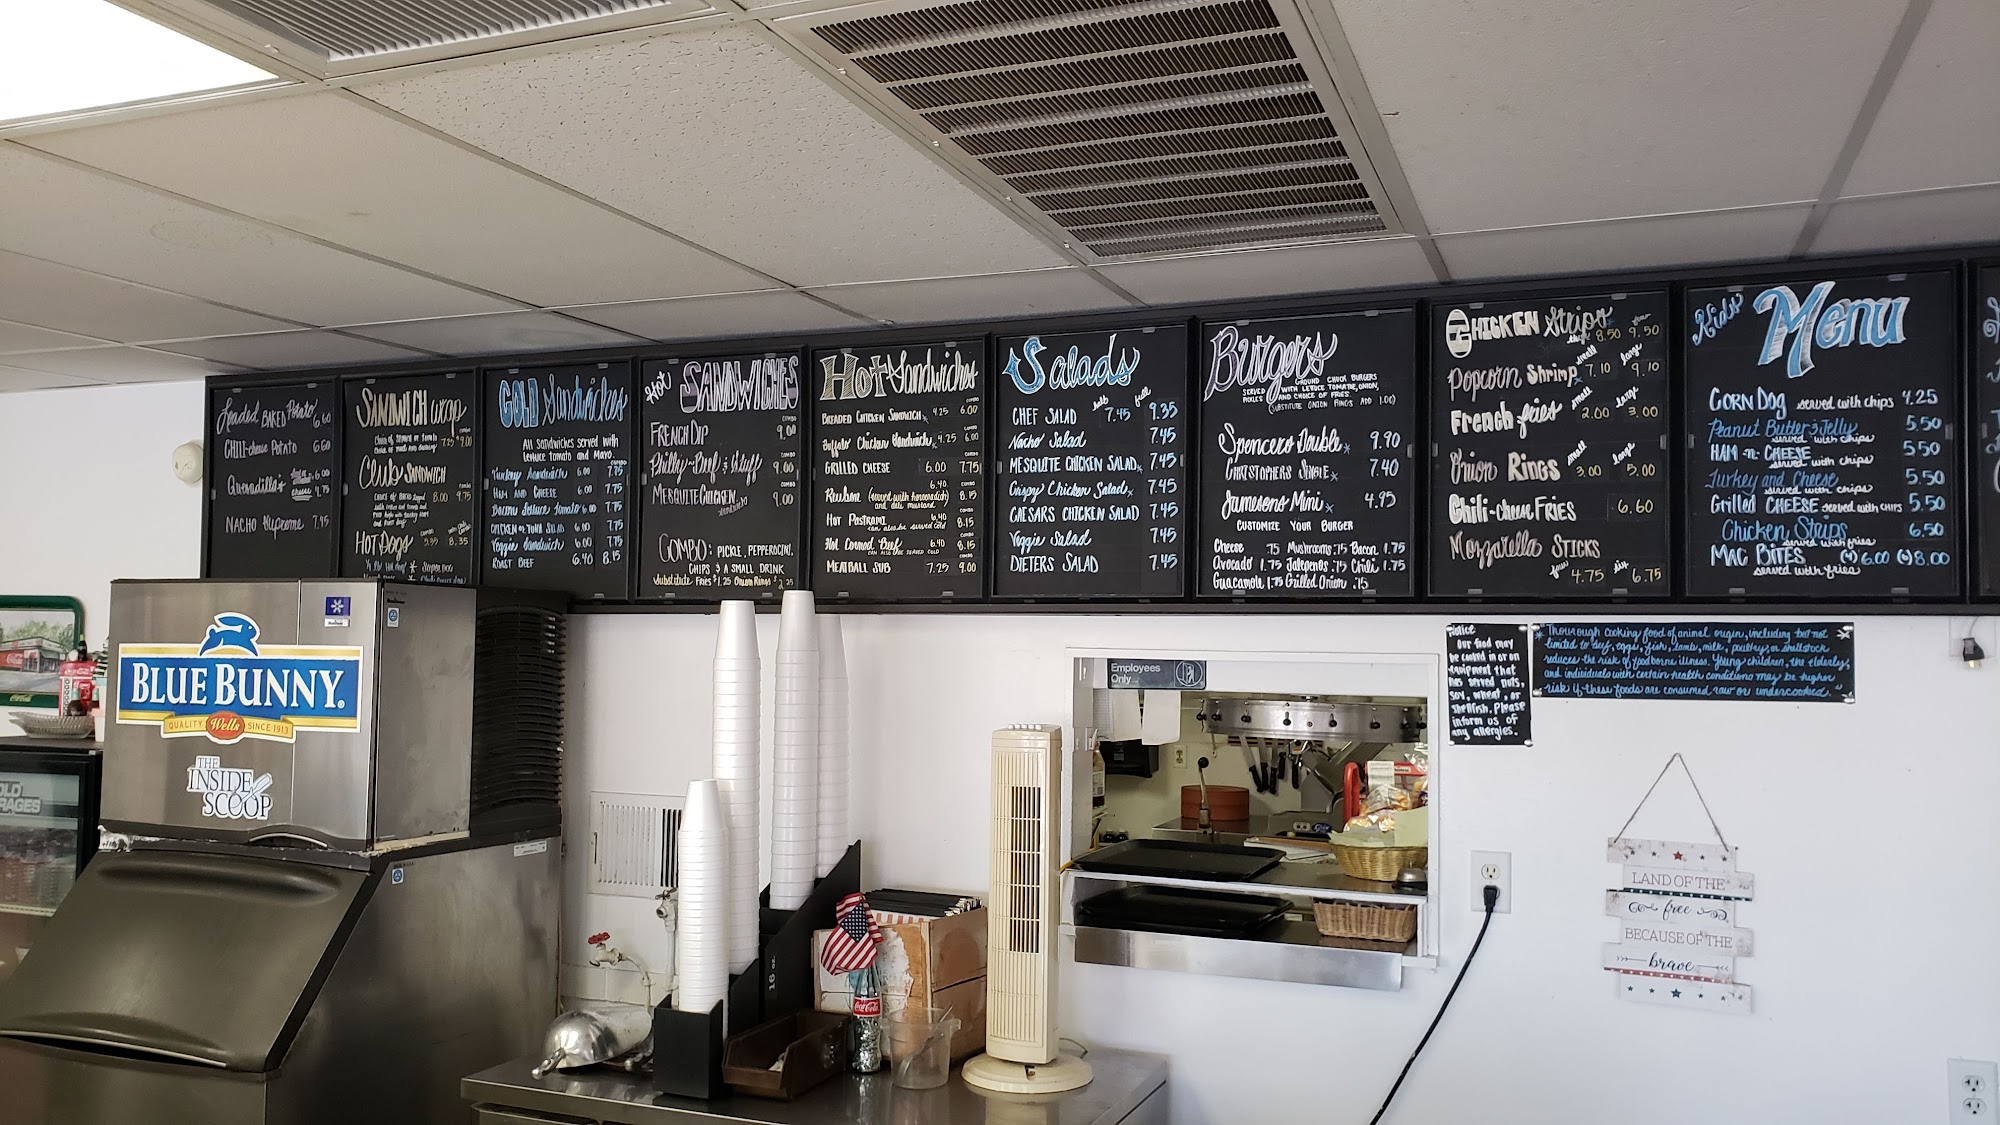 Loaded BAKED Potato 6.60
CHILI-cheese POTATO 6.60
Quesadilla's
6.00
cheese 4.75
NACHO Supreme 7.95
SANDWICH wrap
COMBO
7.75 9.00
Club SANDWICH
8.00 9.75
HOT Dogs
8.35
COLD Sandwiches
All Sandwiches served with
lettuce tomato and Mayo.
COMBO
Turkey Sandwich 6.00 7.75
HAM AND CHEESE 6.00 7.75
Bacon Lettuce Tomato 6.00 7.75
CHICKEN or TUNA SALAD 6.00 7.75
Veggie Sandwich 6.00 7.75
ROAST BEEF 6.40 8.15
Hot SANDWICHES
COMBO
FRENCH DIP 9.00
COMBO
Philly-Beef & Stuff 9.00
COMBO
MESQUITE CHICKEN 9.00
COMBO: PICKLE, PEPPEROCINI,
CHIPS & A SMALL DRINK
Substitute Fries $1.25 Onion Rings $2.25
Hot Sandwiches
COMBO
BREADED CHICKEN SANDWICH * 4.25 6.00
Buffalo Chicken Sandwich * 4.25 6.00
GRILLED CHEESE 6.00 7.75
Reuben (served with horseradish and deli mustard) 6.40 8.15
Hot Pastrami 6.40 8.15
can also be served cold
Hot Corned Beef 6.40 8.15
CAN ALSO BE SERVED COLD
MEATBALL SUB 7.25 9.00
Salads
half full
CHEF SALAD 7.45 9.35
Nacho Salad 7.45
MESQUITE CHICKEN SALAD * 7.45
Crispy Chicken Salad * 7.45
CAESARS CHICKEN SALAD 7.45
Veggie Salad 7.45
DIETERS SALAD 7.45
Burgers
GROUND CHUCK BURGERS
SERVED WITH LETUCE TOMATOE, ONION,
PICKLES AND CHOICE OF FRIES.
(SUBSTITUTE ONION RINGS ADD 1.00)
Spencers Double * 9.90
CHRISTOPHERS SINGLE * 7.40
Jamesons Mini * 4.95
CUSTOMIZE YOUR BURGER
Cheese .75 Mushrooms .75 Bacon 1.75
Avocado 1.75 Jalepenos .75 Chili 1.75
Guacamole 1.75 Grilled Onion .75
CHICKEN Strips
three four
8.50 9.50
small large
Popcorn Shrimp * 7.10 9.10
small large
French fries 2.00 3.00
small large
Onion Rings 3.00 5.00
Chili-cheese FRIES 6.60
Mozzarella STICKS
four six
4.75 6.75
Kids Menu
CORN DOG served with chips 4.25
Peanut Butter & Jelly 5.50
served with chips
HAM -n- CHEESE 5.50
served with chips
Turkey and Cheese 5.50
served with chips
Grilled CHEESE served with CHIPS 5.50
Chicken Strips 6.50
served with fries
MAC BITES (4) 6.00 (6) 8.00
served with fries
Notice
Our food may
be cooked in or on
equipment that
has served nuts,
soy, wheat, or
shellfish. Please
inform us of
any allergies.
*Thourough cooking food of animal origin, including but not
limited to beef, eggs, fish, lamb, milk, poultry, or shellstock
reduces the risk of foodborne illness. Young children, the elderly,
and individuals with certain health conditions may be higher
risk if these foods are consumed raw or undercooked."
Employees
Only
BLUE BUNNY
QUALITY Wells SINCE 1913
THE
INSIDE
SCOOP
16 oz.
Coca-Cola
LAND OF THE
free
BECAUSE OF THE
brave